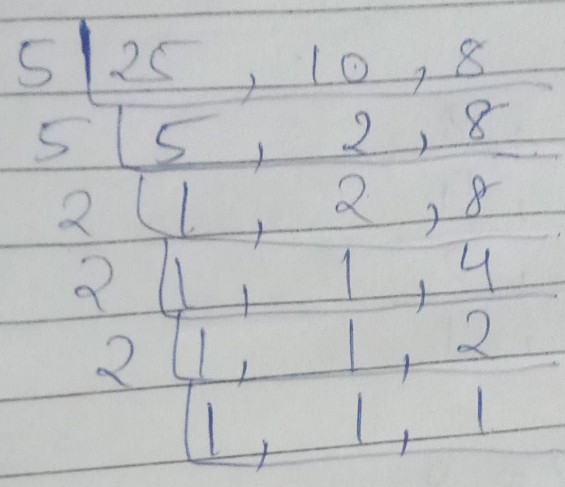 5 | 25 , 10 , 8
5 | 5 , 2 , 8
2 | 1 , 2 , 8
2 | 1 , 1 , 4
2 | 1 , 1 , 2
| 1 , 1 , 1